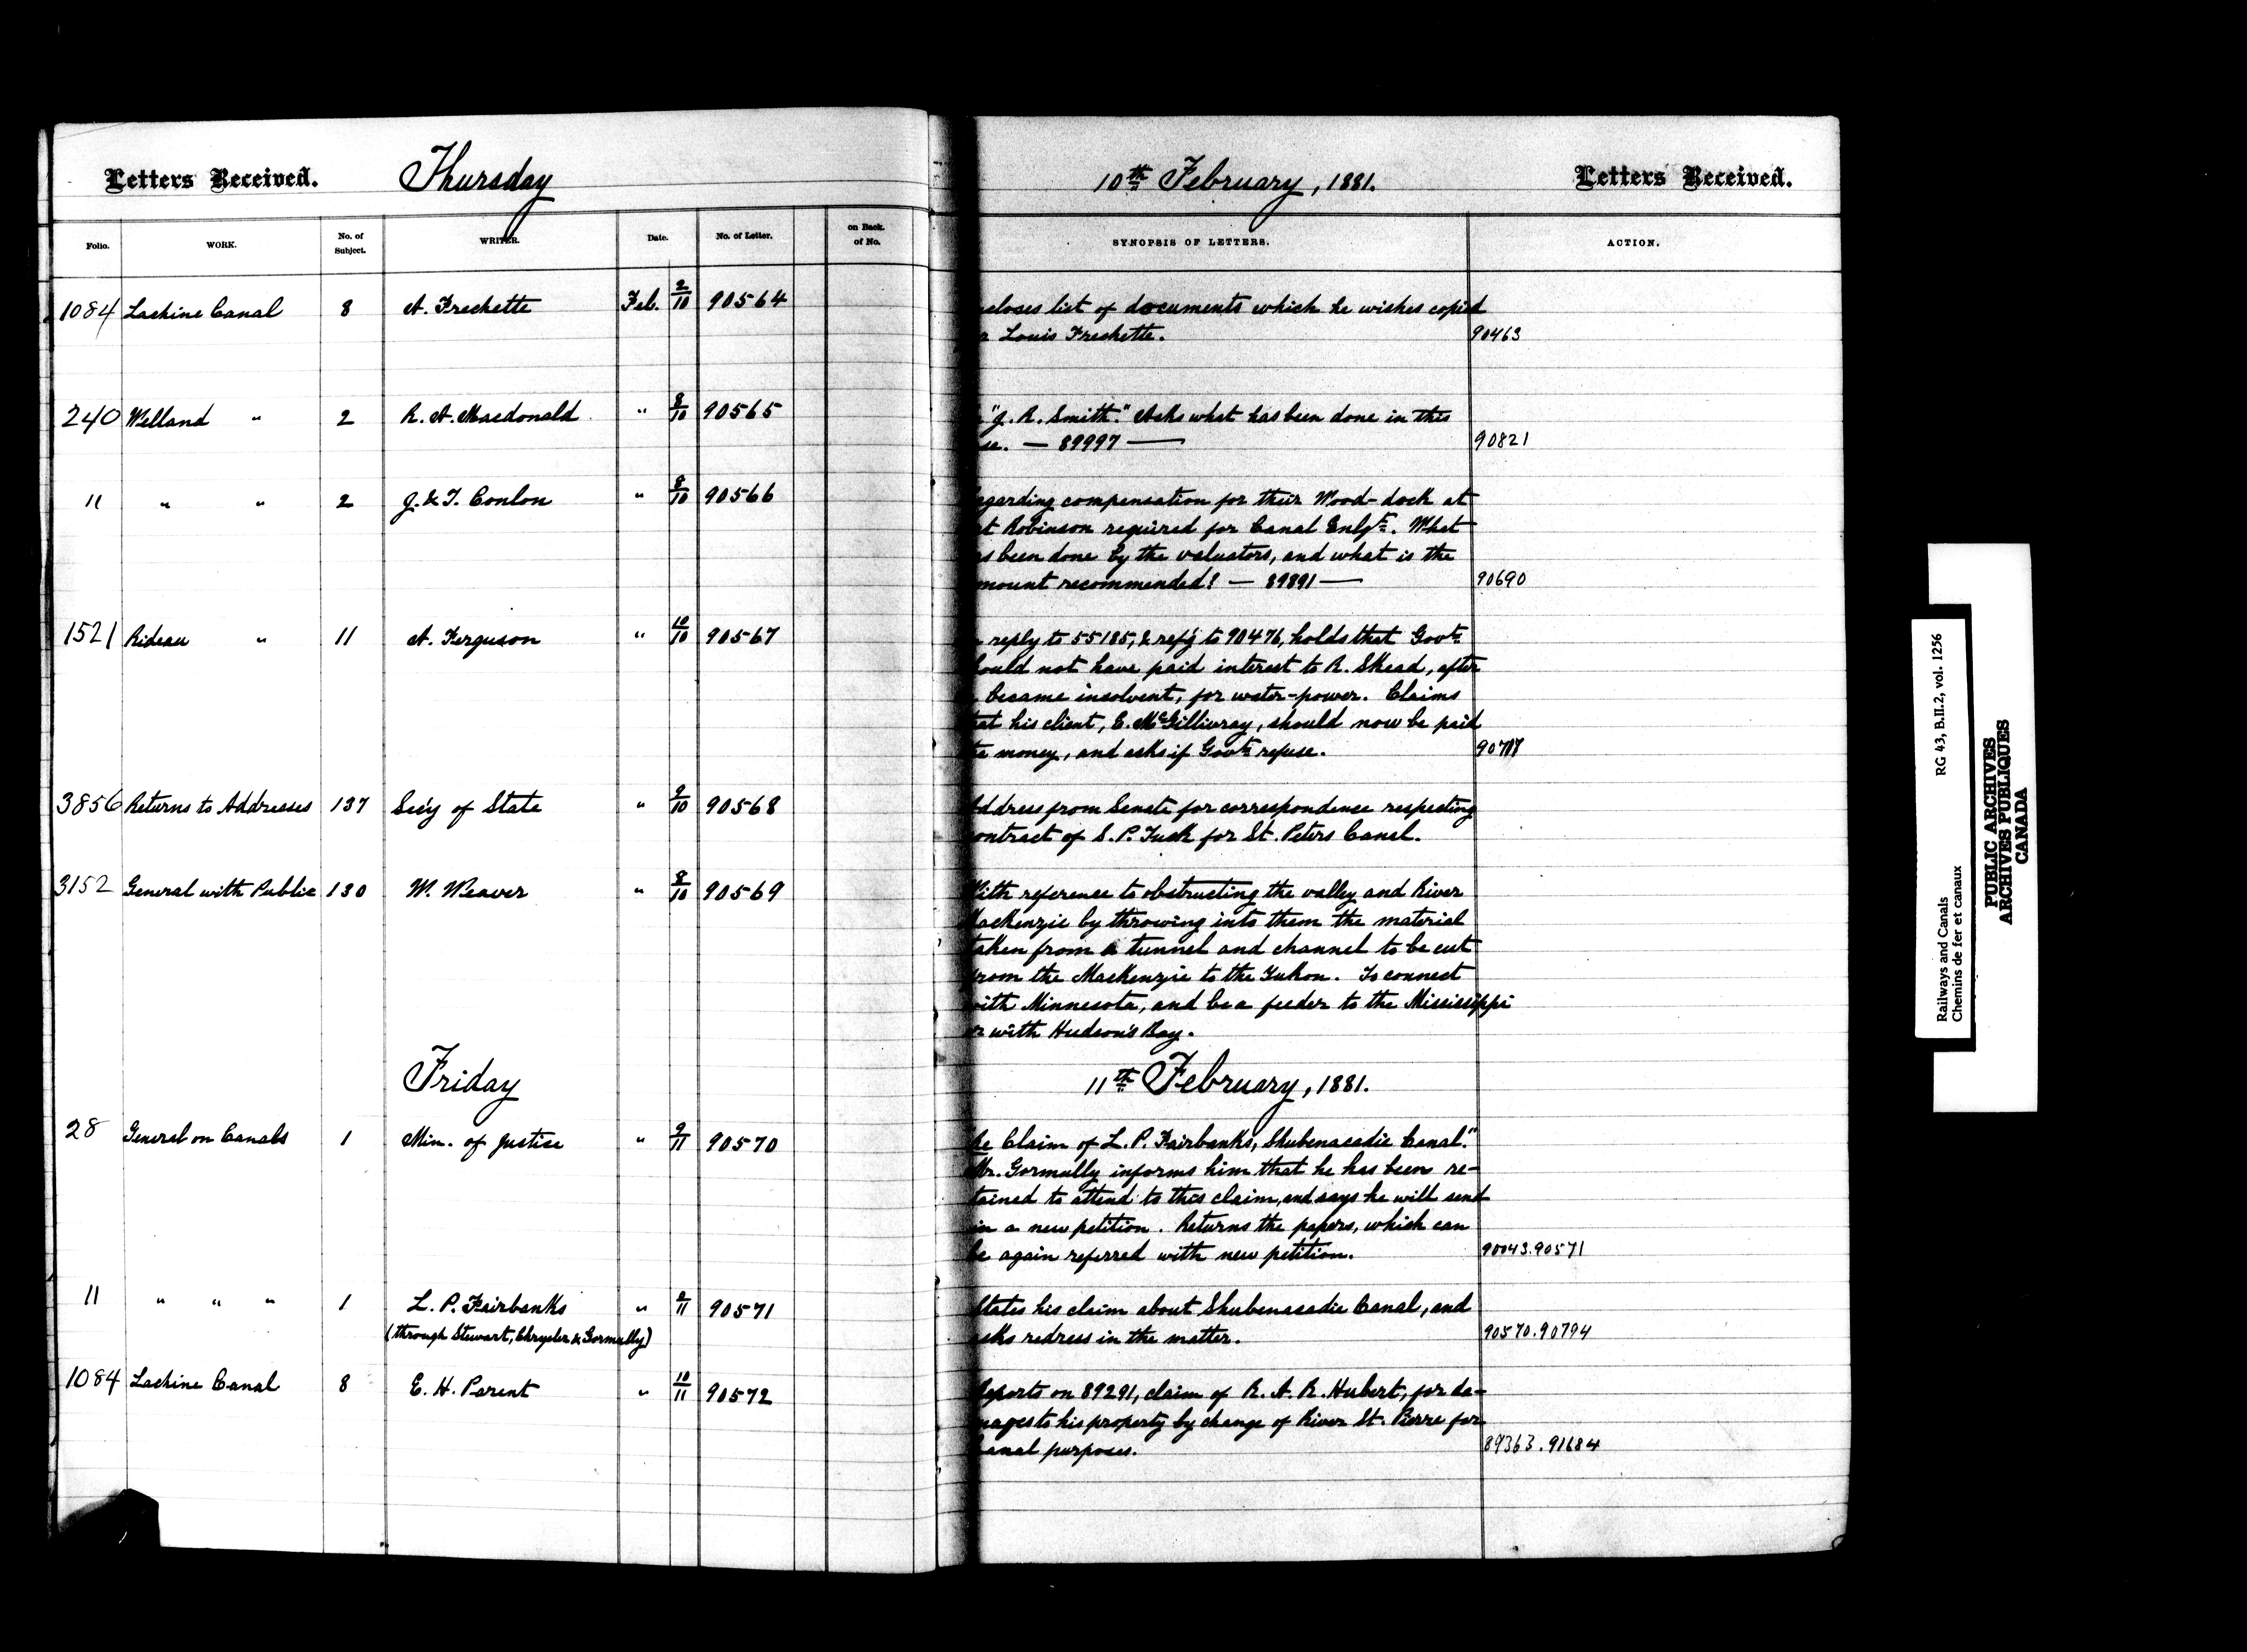 Letters Received. Thursday 10th February, 1881. Letters Received.
Folio. WORK. No. of Subject. WRITER. Date. No. of Letter. on Back. of No. SYNOPSIS OF LETTERS. ACTION.
1084 Lachine Canal 8 A. Frechette Feb. 2/10 90564 closes list of documents which he wishes copied
Louis Frechette. 90463
240 Welland " 2 R. A. Macdonald " 8/10 90565 "J. R. Smith." Asks what has been done in this
se. — 89997 — 90821
" " " 2 J. & T. Conlon " 8/10 90566 egarding compensation for their Wood-dock at
t Robinson required for Canal Enlgt. What
s been done by the valuators, and what is the
mount recommended? — 89891 — 90690
1521 Rideau " 11 A. Ferguson " 10/10 90567 reply to 55185, & ref'g to 90476, holds that Govt.
hould not have paid interest to R. Skead, after
became insolvent, for water-power. Claims
hat his client, E. McGillivray, should now be paid
the money, and asks if Govt. refuse.
3856 Returns to Addresses 137 Sec'y of State " 9/10 90568 Address from Senate for correspondence respecting
ontract of S. P. Tuck for St. Peters Canal.
3152 General with Public 130 W. Weaver " 8/10 90569 With reference to obstructing the valley and River
MacKenzie by throwing into them the material
taken from a tunnel and channel to be cut
from the MacKenzie to the Yukon. To connect
with Minnesota, and be a feeder to the Mississippi
or with Hudson's Bay.
Friday 11th February, 1881.
28 General on Canals 1 Min. of Justice " 9/11 90570 Re Claim of L. P. Fairbanks, Shubenacadie Canal."
Mr. Gormully informs him that he has been re-
tained to attend to this claim, and says he will send
in a new petition. Returns the papers, which can
be again referred with new petition. 90043.90571
" " " " 1 L. P. Fairbanks " 2/11 90571 States his claim about Shubenacadie Canal, and
(through Stewart, Chrysler & Gormully) asks redress in the matter. 90570.90794
1084 Lachine Canal 8 E. H. Parent " 10/11 90572 Reports on 89291, claim of R. A. R. Hubert, for da-
mages to his property by change of River St. Pierre for
Canal purposes. 89363.91684
Railways and Canals RG 43, B.II.2, vol. 1256
Chemins de fer et canaux
PUBLIC ARCHIVES
ARCHIVES PUBLIQUES
CANADA